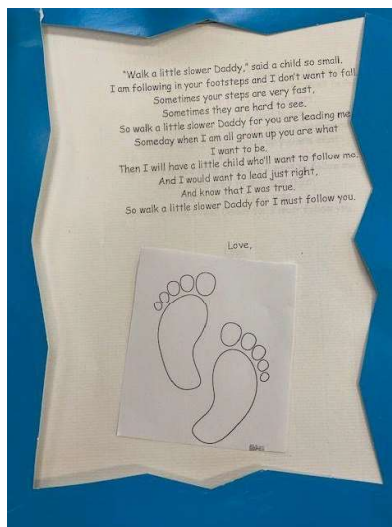 "Walk a little slower Daddy," said a child so small,
I am following in your footsteps and I don't want to fall.
Sometimes your steps are very fast,
Sometimes they are hard to see.
So walk a little slower Daddy for you are leading me
Someday when I am all grown up you are what
I want to be.
Then I will have a little child who'll want to follow me.
And I would want to lead just right,
And know that I was true.
So walk a little slower Daddy for I must follow you.
Love,